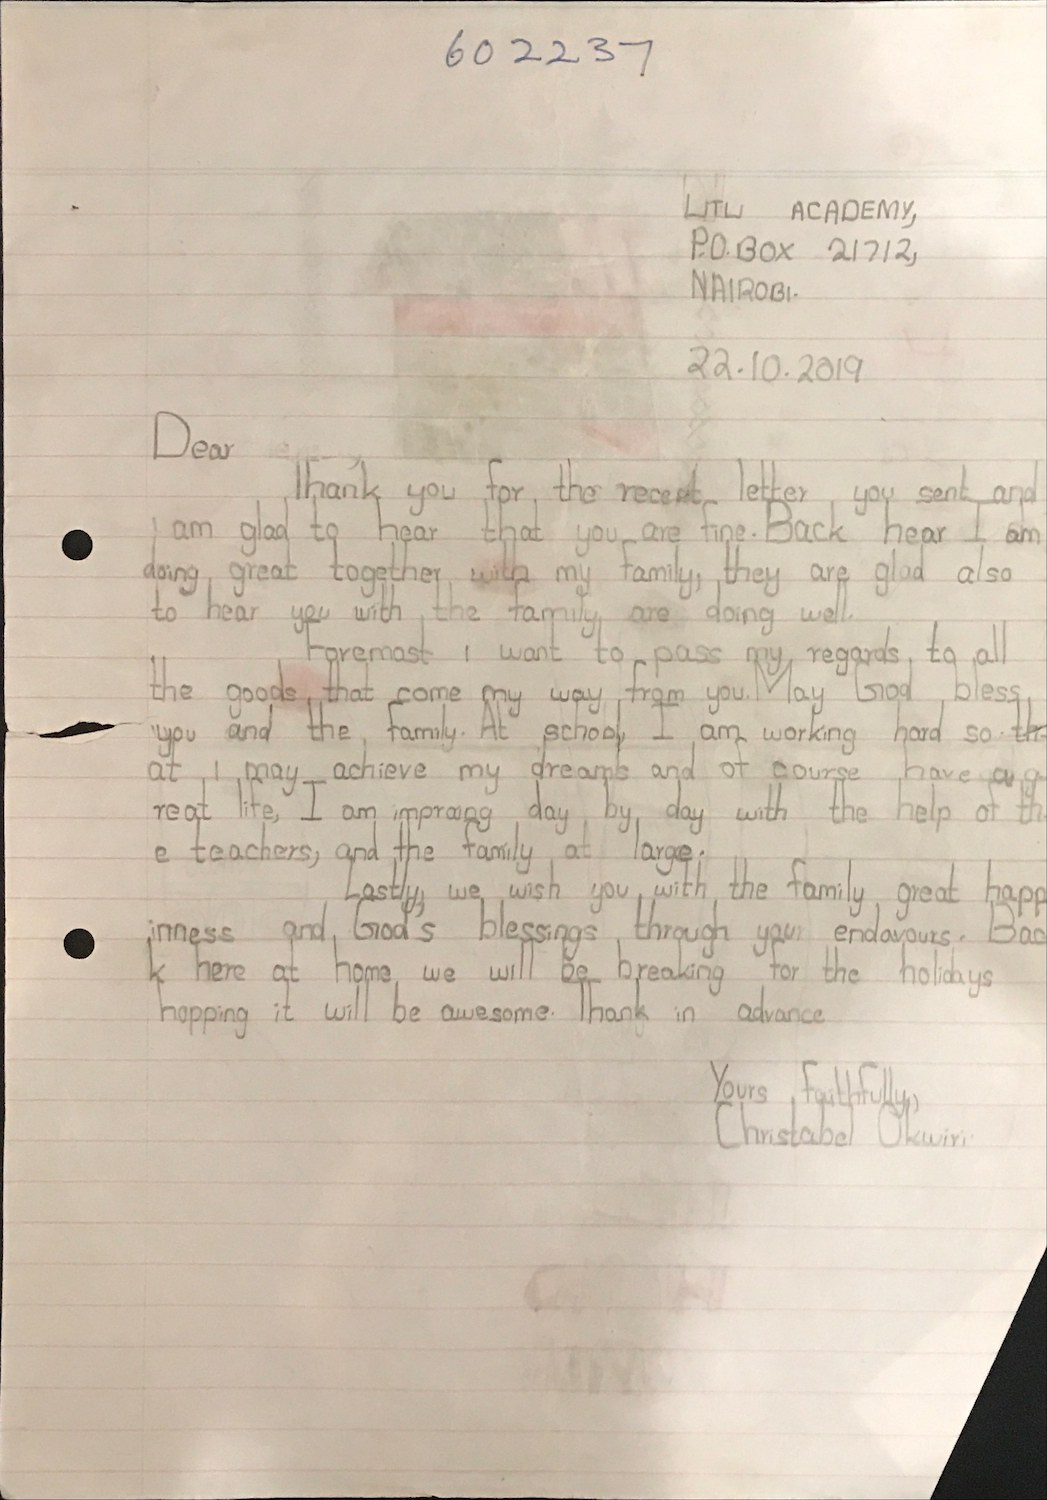 602237
LITU ACADEMY,
P.O.BOX 21712,
NAIROBI.
22.10.2019
Dear
Thank you for the recent letter you sent and
I am glad to hear that you are fine. Back hear I am
doing great together with my family, they are glad also
to hear you with the family are doing well.
Foremost I want to pass my regards to all
the goods that come my way from you. May God bless
you and the family. At school I am working hard so th-
at I may achieve my dreams and of course have a g
reat life, I am improing day by day with the help of th
e teachers, and the family at large.
Lastly, we wish you with the family great happ
inness and God's blessings through your endavours. Bac
k here at home we will be breaking for the holidays
hopping it will be awesome. Thank in advance
Yours faithfully,
Christabel Okwiri.